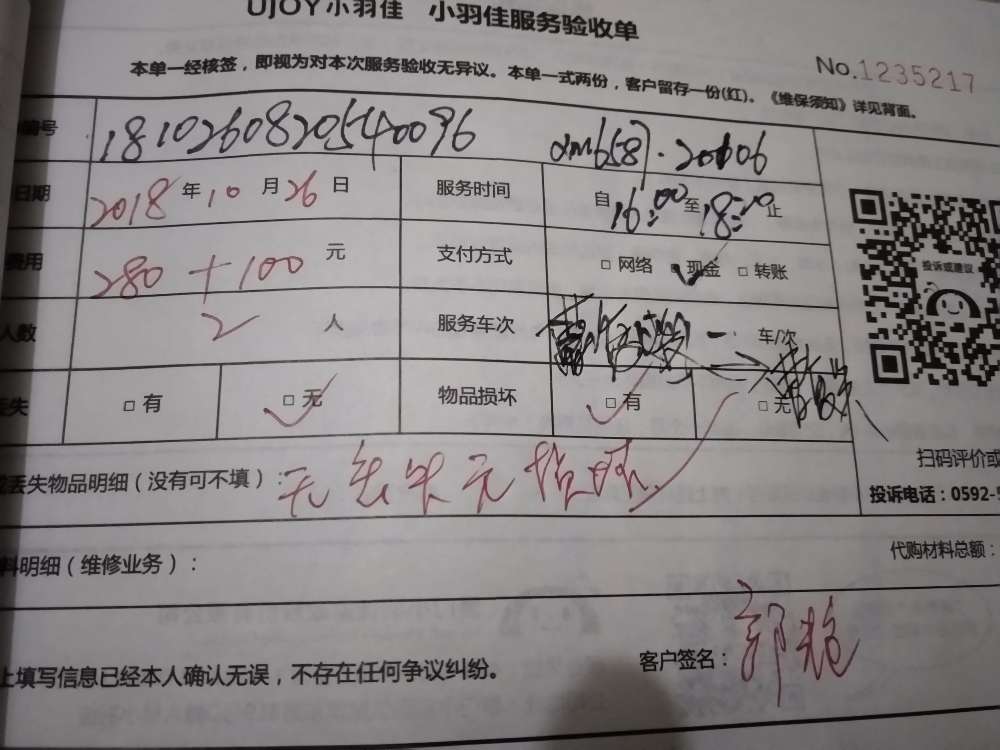 UJOY小羽佳 小羽佳服务验收单
No.1235217
本单一经核签，即视为对本次服务验收无异议。本单一式两份，客户留存一份(红)。《维保须知》详见背面。
编号 1810260820540096
日期 2018年10月26日 服务时间 自16:00至18:20止
费用 280+100元 支付方式 □网络 □现金 □转账
人数 2人 服务车次 一 车/次
丢失 □有 □无 物品损坏 □有 □无
投诉或建议
扫码评价或
丢失物品明细（没有可不填）：无丢失无损坏
投诉电话：0592-5
料明细（维修业务）：
代购材料总额：
上填写信息已经本人确认无误，不存在任何争议纠纷。
客户签名：郭艳